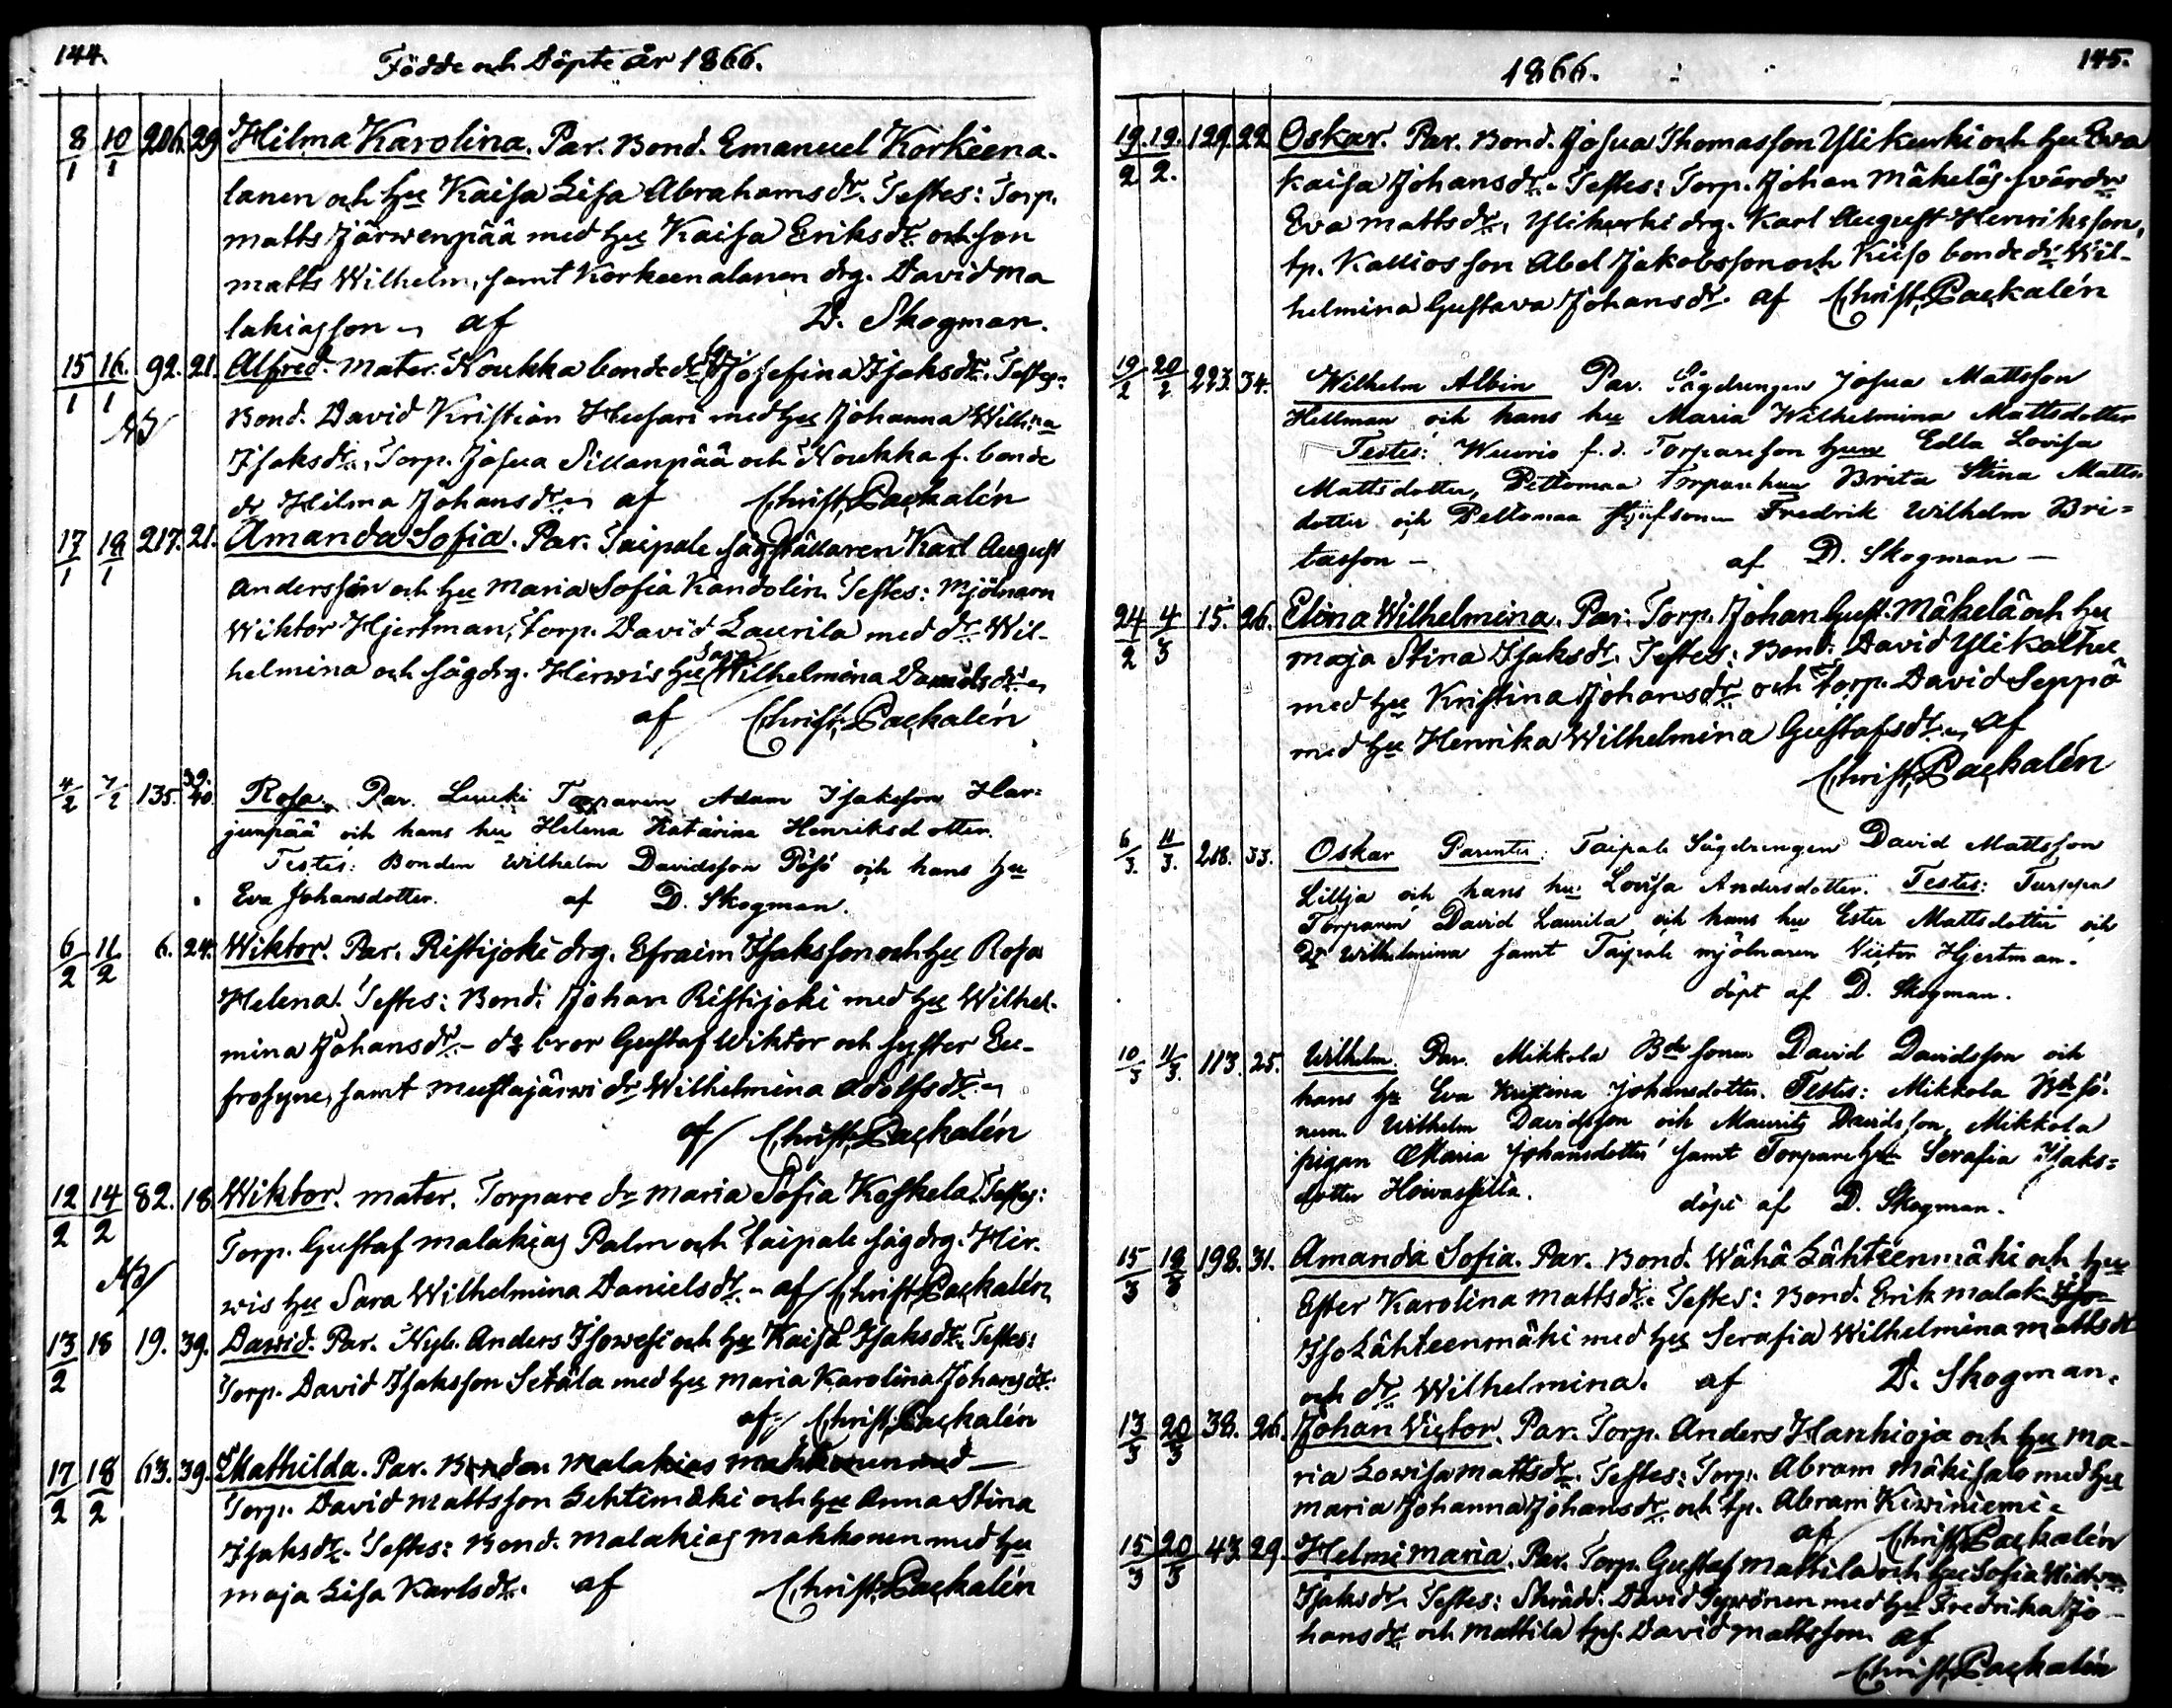 144.
Födde och Döpte år 1866.
8/1 10/1 206. 29 Hilma Karolina. Par. Bond. Emanuel Korkeena-
lanen och hu Kaisa Lisa Abrahamsdr. Testes: Torp.
Matts Järwenpää med hu Kaisa Eriksdr och son
Matts Wilhelm, samt Korkeenalanen drg. David Ma
lakiasson af D. Skogman.
15/1 16/1 92. 21. Alfred. Mater. Noukka bondedr Josefina Isaksdr. Testes:
Bond. David Kristian Husari med hu Johanna Wilh:na
Isaksdr, Torp. Josua Sillanpää och Noukka f. bonde
dr Hilma Johansdr af Christ. Packalén
17/1 19/1 217. 21. Amanda Sofia. Par. Taipale sågställaren Karl August
Andersson och hu Maria Sofia Kandolin Testes: Mjölnaren
Wiktor Hjertman, Torp. David Laurila med dr Wil-
helmina och sågdrg. Hirwis hu Sara Wilhelmina Danielsdr
af Christ. Packalén
4/2 7/2 135. 39. 40. Rosa. Par. Luuki Torparen Adam Isaksson Har-
junpää och hans hu Helena Katarina Henriksdotter.
Testes: Bonden Wilhelm Davidsson Pösö och hans hu
Eva Johansdotter. af D. Skogman.
6/2 11/2 6. 24. Wiktor. Par. Ristijoki drg. Efraim Isaksson och hu Rosa
Helena. Testes: Bond. Johan Ristijoki med hu Wilhel-
mina Johansdr - ds bror Gustaf Wiktor och syster Eu-
frosyne, samt Mustajärwi dr Wilhelmina Adolfsdr
af Christ. Packalén
12/2 14/2 82. 18. Wiktor. Mater. Torpare dr Maria Sofia Koskela. Testes:
Torp. Gustaf Malakias Palm och Taipale sågdrg. Hir-
wis hu Sara Wilhelmina Danielsdr. af Christ. Packalén
13/2 18 19. 39. David. Par. Nyb. Anders Isowesi och hu Kaisa Isaksdr. Testes:
Torp. David Isaksson Setälä med hu Maria Karolina Johansdr.
af Christ. Packalén
17/2 18/2 63. 39. Mathilda. Par. Bonden Malakias Makkonen med
Torp. David Mattsson Lehtimäki och hu Anna Stina
Isaksdr. Testes: Bond. Malakias Makkonen med hu
Maja Lisa Karlsdr. af Christ. Packalén
1866. 145.
19/2 19/2. 129. 22. Oskar. Par. Bond. Josua Thomasson Ylikurki och hu Eva
Kaisa Johansdr. Testes: Torp. Johan Mäkeläs swärdr
Eva Mattsdr, Ylikurki drg. Karl August Henriksson,
tp. Kallios son Abel Jakobsson och Keiso bondedr Wil-
helmina Gustava Johansdr. af Christ. Packalén
19/2 20/2 223. 34. Wilhelm Albin Par. Sågdrengen Josua Mattsson
Hellman och hans hu Maria Wilhelmina Mattsdotter
Testes: Wuorio f.d. Torpareson hu Edla Lovisa
Mattsdotter, Peltomaa Torparehu Brita Stina Matts
dotter och Peltomaa Fredrik Wilhelm Bri-
tasson - af D. Skogman -
24/2 4/3 15. 26. Elina Wilhelmina. Par. Torp. Johan Gust. Mäkelä och hu
Maja Stina Isaksdr. Testes: Bond. David Ylikaltue
med hu Kristina Johansdr och Torp. David Seppä
med hu Henrika Wilhelmina Gustafsdr af
Christ. Packalén
6/3. 11/3. 218. 33. Oskar Parentes: Taipale Sågdrengen David Mattsson
Lillja och hans hu Lovisa Andersdotter. Testes:
Torparen David Laurila och hans hu Ester Mattsdotter och
dr Wilhelmina samt Taipale mjölnaren Victor Hjertman.
döpt af D. Skogman.
10/3 11/3. 113. 25. Wilhelm. Par. Mikkola Bde sonen David Davidsson och
hans hu Eva Kristina Johansdotter. Testes: Mikkola Bde sö-
nern Wilhelm Davidsson och Maurits Davidsson, Mikkola
pigan Maria Johansdotter samt Torpare hu Serafia Isaks-
dotter Hoivassilta. döpt af D. Skogman.
15/3 18/3 198. 31. Amanda Sofia. Par. Bond. Wähä Lähteenmäki och hu
Ester Karolina Mattsdr. Testes: Bond. Erik Malak. Iso
Iso Lähteenmäki med hu Serafia Wilhelmina Mattsdr
och dr. Wilhelmina. af D. Skogman.
13/3 20/3 38. 26. Johan Victor. Par. Torp. Anders Hankioja och hu Ma-
ria Lowisa Mattsdr. Testes: Torp. Abram Mäkisalo med hu
Maria Johanna Johansdr och tp. Abram Kiwiniemi.
af Christ. Packalén
15/3 20/3 43. 29. Helmi Maria. Par. Torp. Gustaf Mattila och hu Sofia
Isaksdr. Testes: Skrädd. David Tyrönen med hu Fredrika Jo-
hansdr och Mattila tps. David Mattsson af
Christ. Packalén